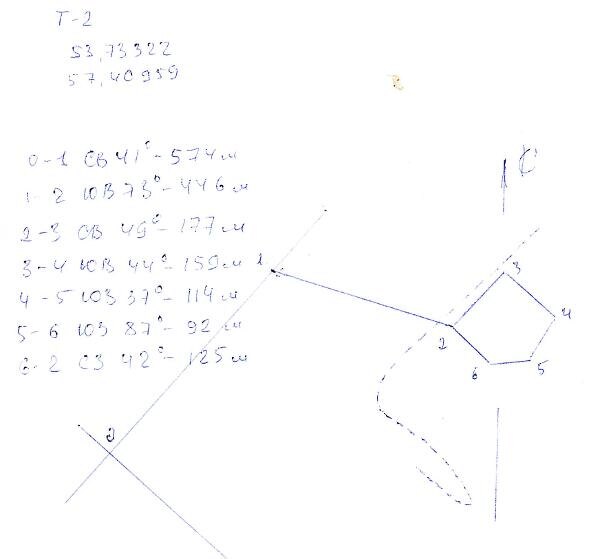 Т-2
53,73322
57,40959
0-1 СВ 41° - 574 м
1-2 ЮВ 73° - 446 м
2-3 СВ 49° - 177 м
3-4 ЮВ 44° - 159 м
4-5 ЮЗ 37° - 114 м
5-6 ЮЗ 87° - 92 м
6-2 СЗ 42° - 125 м
С
1
3
4
2
6
5
0